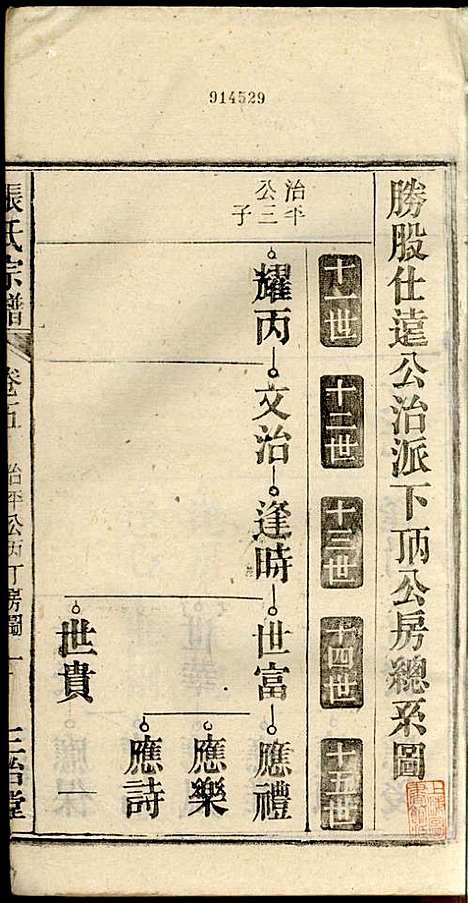 914529
勝股仕遠公治派下丙公房總系圖
十一世
十二世
十三世
十四世
十五世
治平
公三
子
耀丙
文治
逢時
世富
應禮
應樂
應詩
世貴
張氏宗譜
卷之五
治平公丙丁房圖
一
三治堂